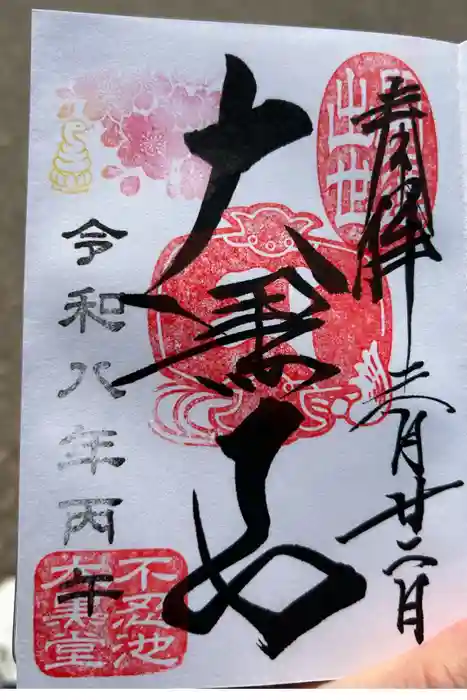 奉拝
三月廿二日
出世
大黒天
令和八年丙午
不忍池
大黒堂